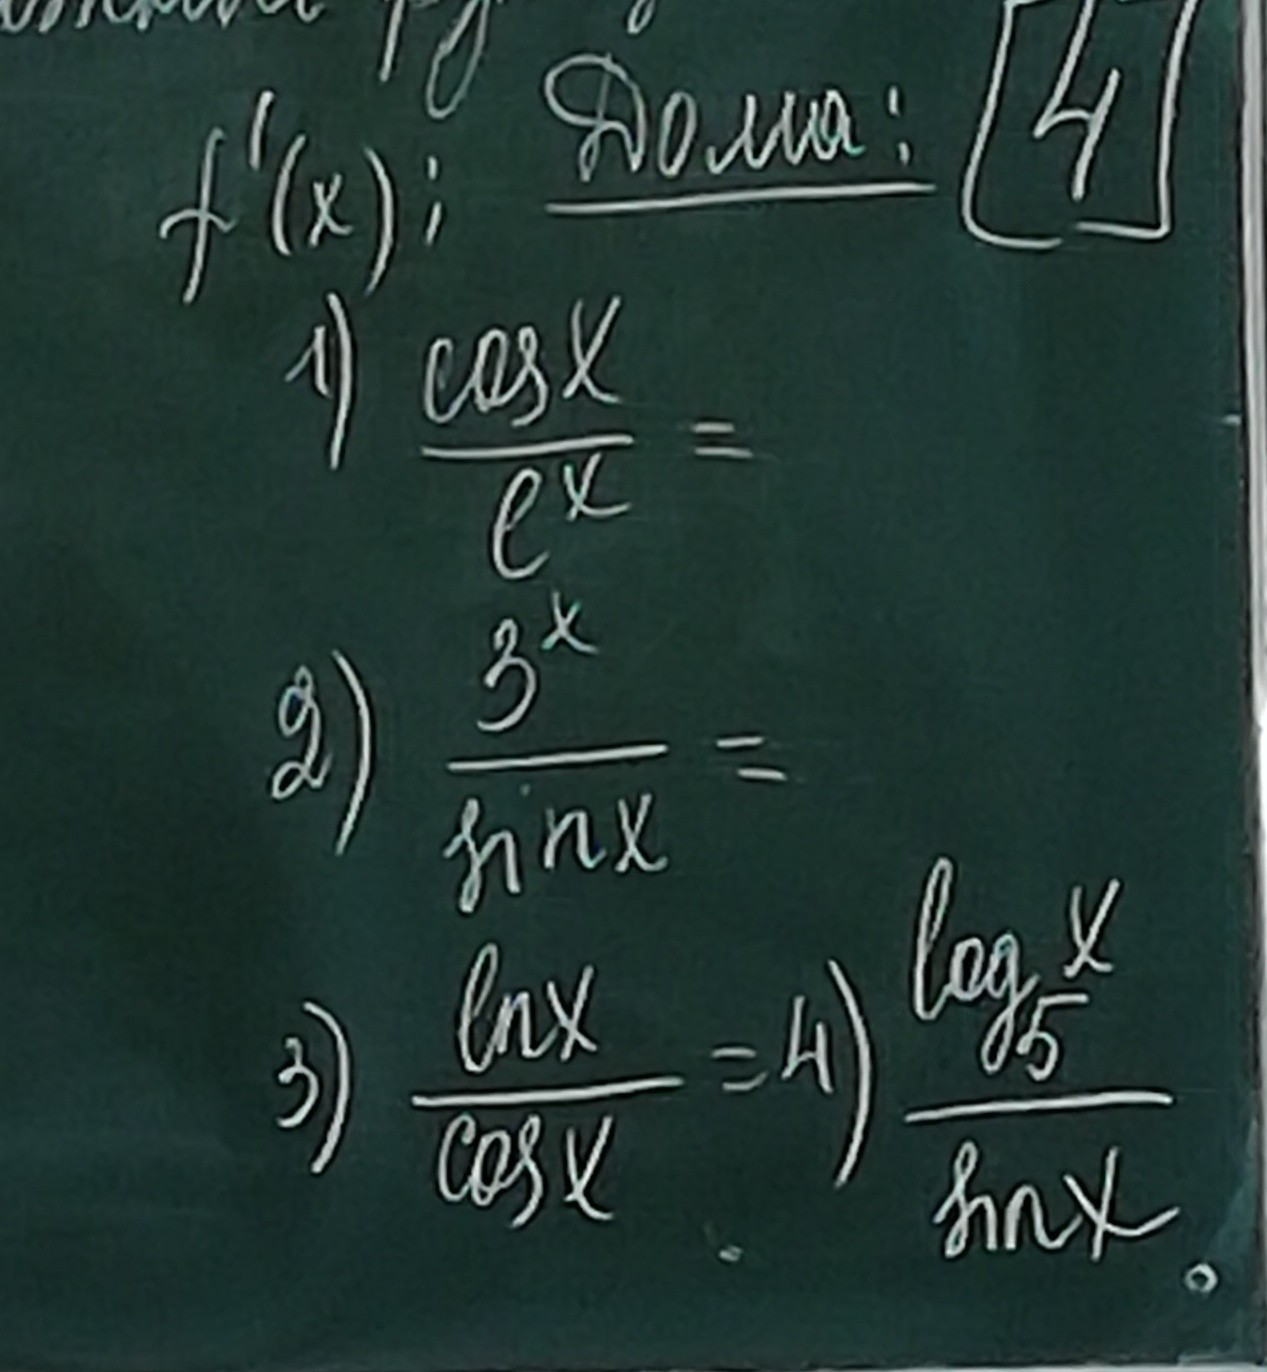 f'(x); Дома: 4
1) cosx / e^x =
2) 3^x / sinx =
3) lnx / cosx = 4) log₅x / sinx